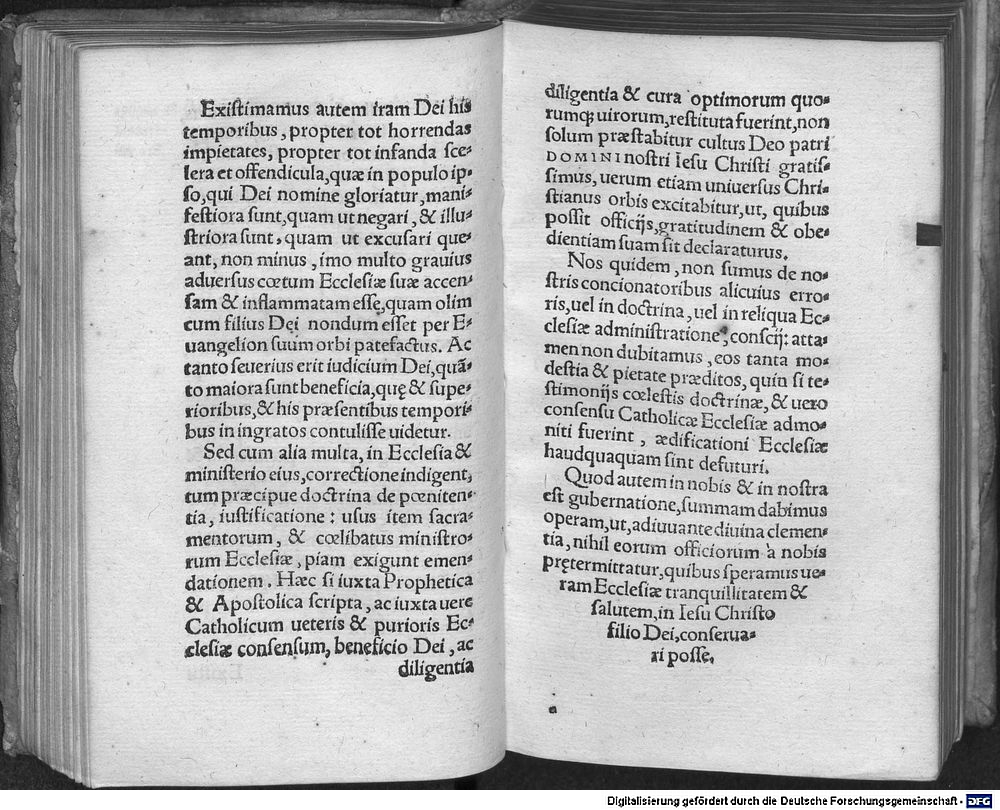 Existimamus autem iram Dei his
temporibus, propter tot horrendas
impietates, propter tot infanda sce-
lera et offendicula, quæ in populo ip-
so, qui Dei nomine gloriatur, mani-
festiora sunt, quam ut negari, & illu-
striora sunt, quam ut excusari que-
ant, non minus, imo multo grauius
aduersus cœtum Ecclesiæ suæ accen-
sam & inflammatam esse, quam olim
cum filius Dei nondum esset per E-
uangelion suum orbi patefactus. Ac
tanto seuerius erit iudicium Dei, quã-
to maiora sunt beneficia, quę & supe-
rioribus, & his præsentibus tempori-
bus in ingratos contulisse uidetur.
Sed cum alia multa, in Ecclesia &
ministerio eius, correctione indigent,
tum præcipue doctrina de pœniten-
tia, iustificatione: usus item sacra-
mentorum, & cœlibatus ministro-
rum Ecclesiæ, piam exigunt emen-
dationem. Hæc si iuxta Prophetica
& Apostolica scripta, ac iuxta uere
Catholicum ueteris & purioris Ec-
clesiæ consensum, beneficio Dei, ac
diligentia
diligentia & cura optimorum quo-
rumq́; uirorum, restituta fuerint, non
solum præstabitur cultus Deo patri
DOMINI nostri Iesu Christi gratis-
simus, uerum etiam uniuersus Chri-
stianus orbis excitabitur, ut, quibus
possit officijs, gratitudinem & obe-
dientiam suam sit declaraturus.
Nos quidem, non sumus de no-
stris concionatoribus alicuius erro-
ris, uel in doctrina, uel in reliqua Ec-
clesiæ administratione, conscij: atta-
men non dubitamus, eos tanta mo-
destia & pietate præditos, quin si te-
stimonijs cœlestis doctrinæ, & uero
consensu Catholicæ Ecclesiæ admo-
niti fuerint, ædificationi Ecclesiæ
haudquaquam sint defuturi.
Quod autem in nobis & in nostra
est gubernatione, summam dabimus
operam, ut, adiuuante diuina clemen-
tia, nihil eorum officiorum à nobis
prętermittatur, quibus speramus ue-
ram Ecclesiæ tranquillitatem &
salutem, in Iesu Christo
filio Dei, conserua-
ri posse.
Digitalisierung gefördert durch die Deutsche Forschungsgemeinschaft - DFG